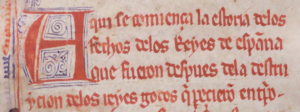 Aqui se comiença la estoria delos
fechos delos Reyes de españa
que fueron despues dela destru
ycion delos reyes godos q̃ perecierõ en tp̃o